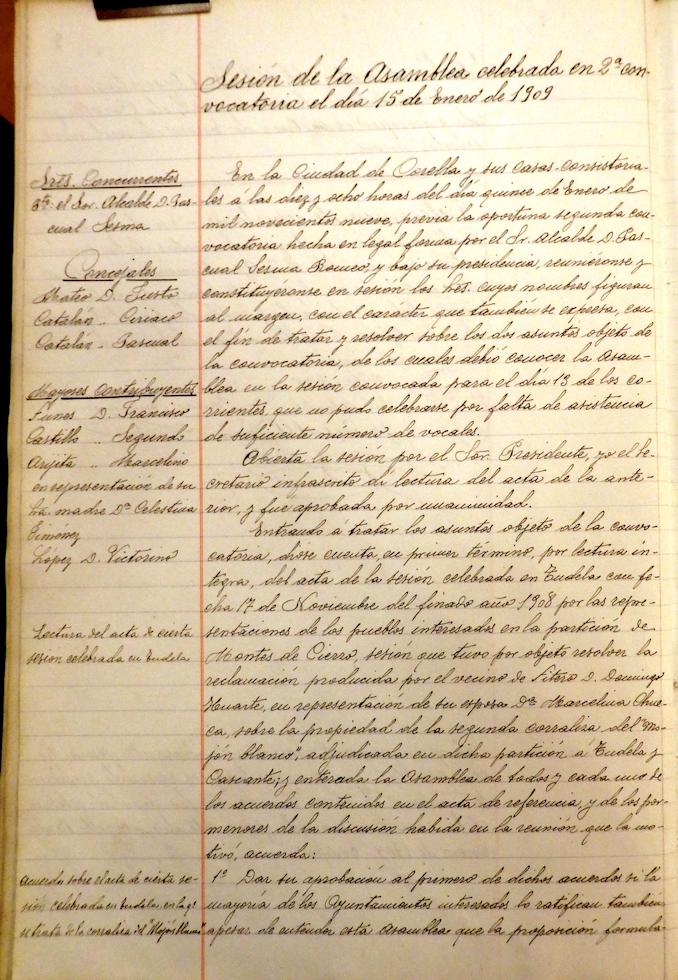 Sesión de la Asamblea celebrada en 2ª con-
vocatoria el día 15 de Enero de 1909
Srts. Concurrentes
Pte. el Sor. Alcalde D. Pas-
cual Sesma
Concejales
Mateo D. Justo
Catalán „ Ciriaco
Catalán „ Pascual
Mayores Contribuyentes
Funes D. Francisco
Castillo „ Segundo
Arjita „ Marcelino
en representación de su
Sra madre Dª Celestina
Giménez
López D. Victorino
Lectura del acta de cierta
sesion celebrada en Tudela
acuerdo sobre el acta de cierta se-
sión celebrada en Tudela, en la q.
se trata de la corraliza del "Mojón blanco"
En la Ciudad de Corella y sus casas-consistoria-
les á las diez y ocho horas del día quince de Enero de
mil novecientos nueve, previa la oportuna segunda con-
vocatoria hecha en legal forma por el Sr. Alcalde D. Pas-
cual Sesma Romeo, y bajo su presidencia, reuniéronse y
constituyéronse en sesión los Sres. cuyos nombres figuran
al margen, con el caracter que también se expresa, con
el fin de tratar y resolver sobre los dos asuntos objeto de
la convocatoria, de los cuales debió conocer la Asam-
blea en la sesión convocada para el día 13 de los co-
rrientes, que no pudo celebrarse por falta de asistencia
de suficiente número de vocales.
Abierta la sesión por el Sor. Presidente, yo el se-
cretario infrascrito dí lectura del acta de la ante-
rior, y fue aprobada por unanimidad.
Entrando á tratar los asuntos objeto de la convo-
catoria, dióse cuenta, en primer término, por lectura ín-
tegra, del acta de la sesión celebrada en Tudela con fe-
cha 17 de Noviembre del finado año 1908 por las repre-
sentaciones de los pueblos interesados en la partición de
Montes de Cierzo, sesión que tuvo por objeto resolver la
reclamación producida por el vecino de Fitero D. Domingo
Huarte, en representación de su esposa Dª Marcelina Chue-
ca, sobre la propiedad de la segunda corraliza del "Mo-
jón blanco", adjudicada en dicha partición á Tudela y
Cascante; y enterada la Asamblea de todos y cada uno de
los acuerdos contenidos en el acta de referencia, y de los por-
menores de la discusión habida en la reunión que la mo-
tivó, acuerda:
1º Dar su aprobación al primero de dichos acuerdos si la
mayoría de los Ayuntamientos interesados lo ratifican también
apesar de entender esta Asamblea que la proposición formula-